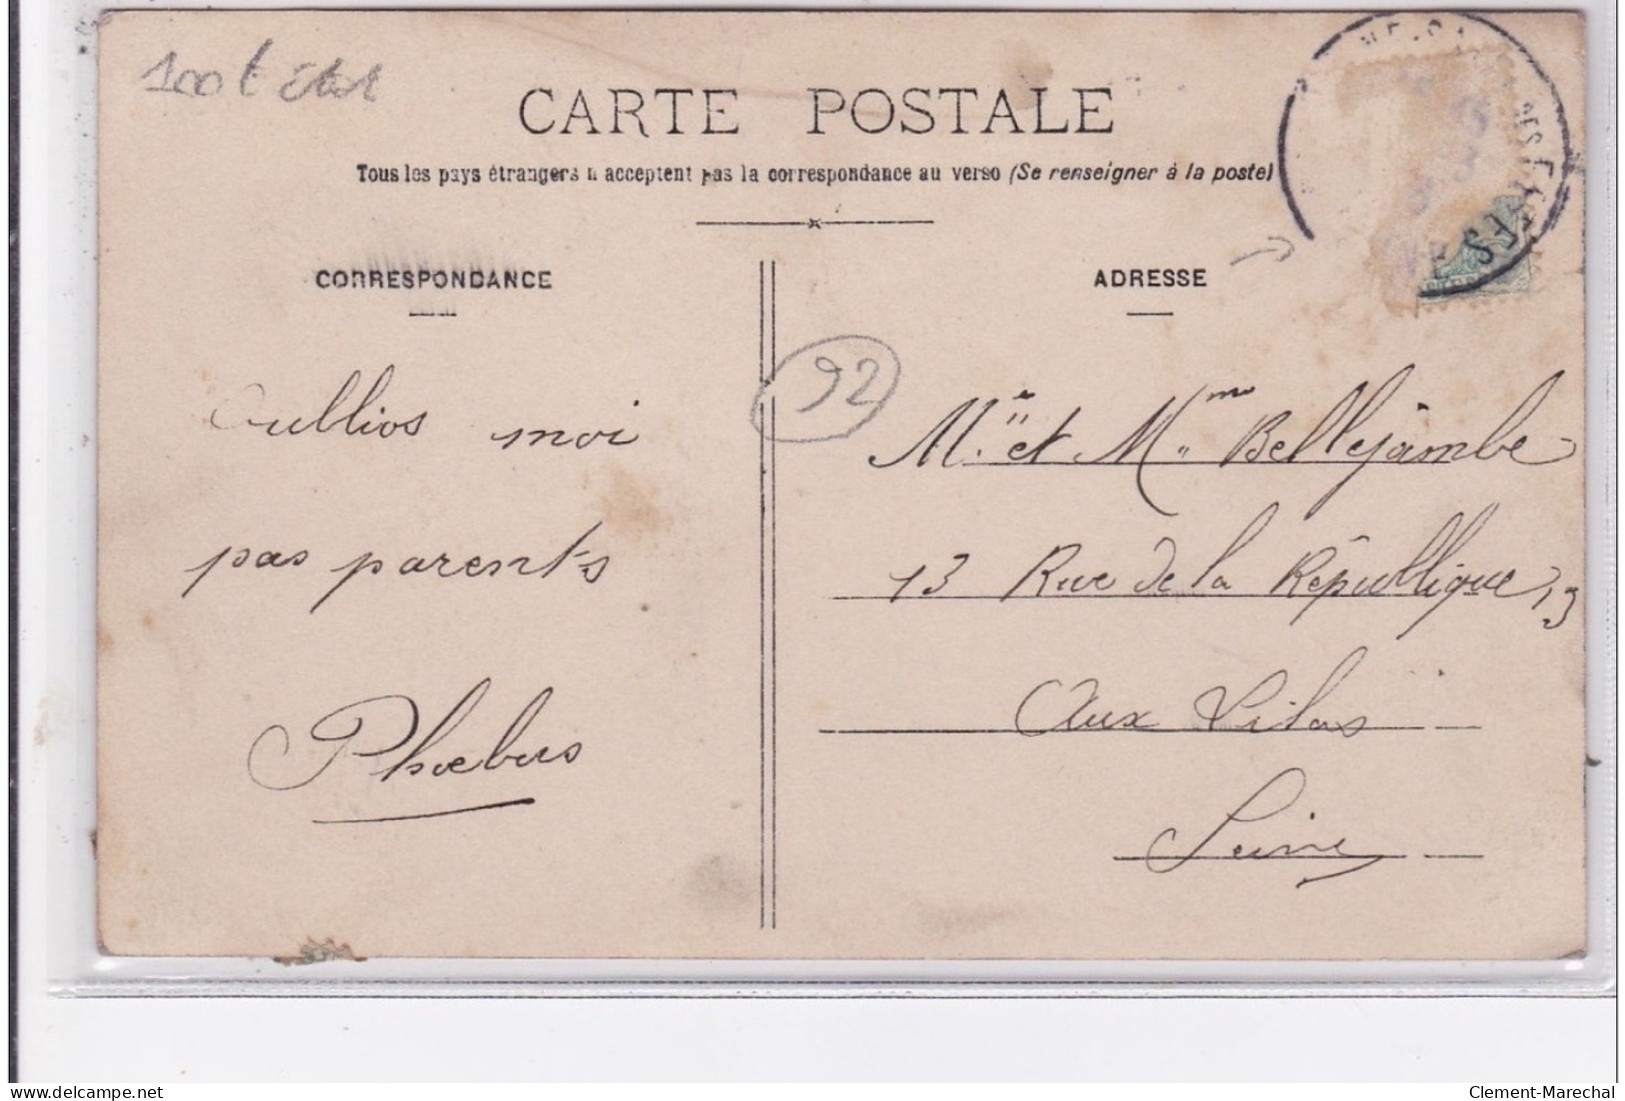 100 f état
CARTE POSTALE
Tous les pays étrangers n acceptent pas la correspondance au verso (Se renseigner à la poste)
CORRESPONDANCE
ADRESSE
92
Oubllios moi
pas parents
Phoebus
Mr et Mme Bellejambe
13 Rue de la République, 13
Aux Lilas
Seine
delcampe.net
Clement-Marechal